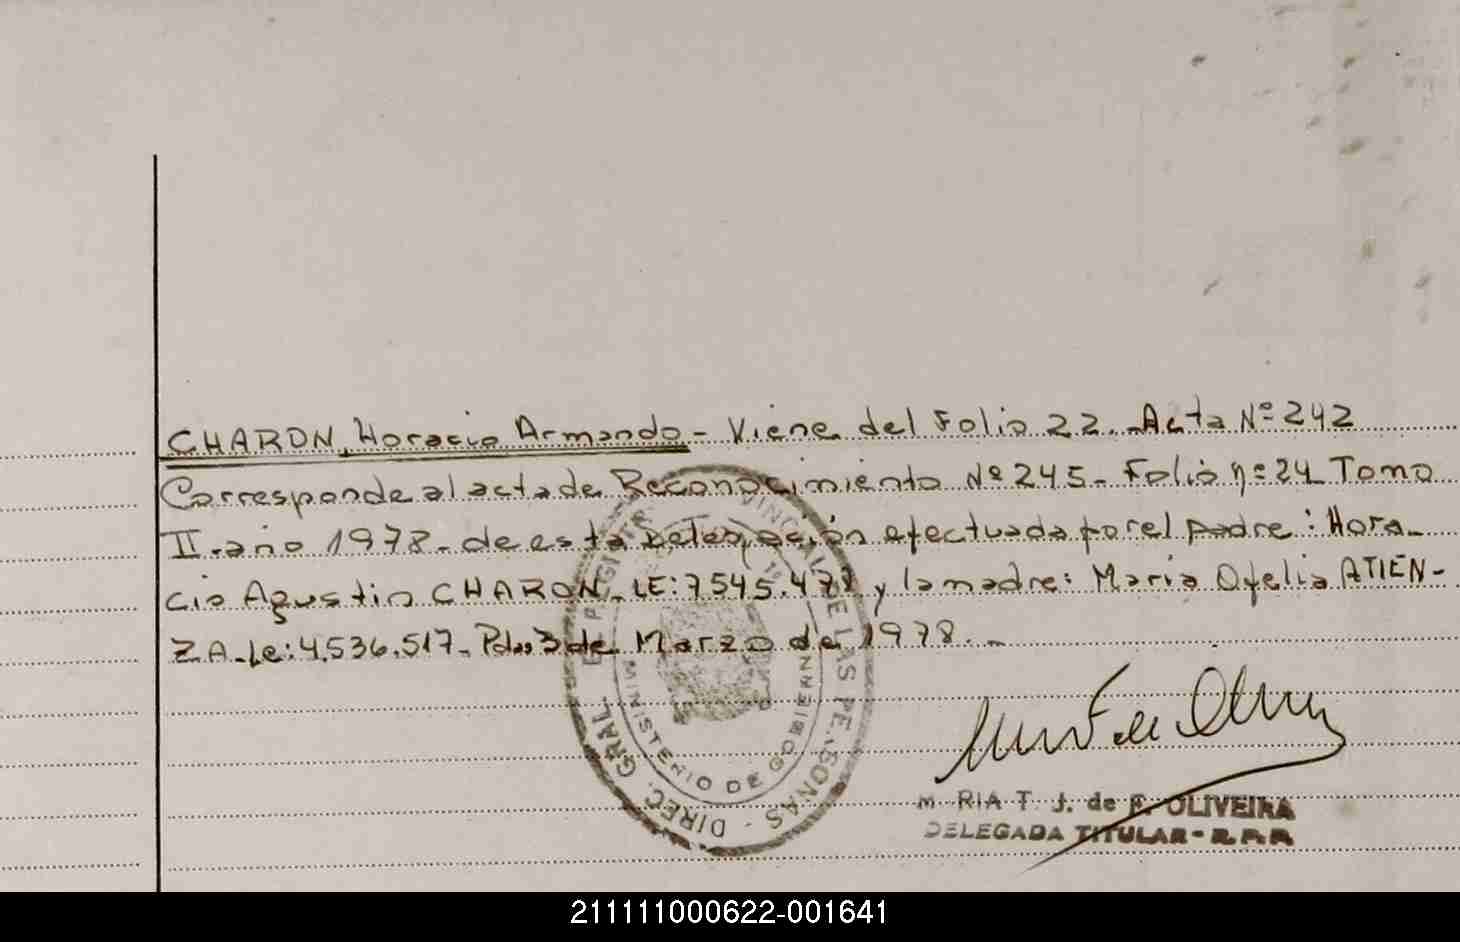 CHARON, Horacio Armando - Viene del Folio 22. - Acta Nº 242
Corresponde al acta de Reconocimiento Nº 245 - Folio nº 24 Tomo
II - año 1978 - de esta Delegación efectuada por el padre : Hora-
cio Agustin CHARON - LE: 7545.477 y la madre: Maria Ofelia ATIEN-
ZA - Le: 4.536.517 - 3 de Marzo de 1978. -
DIREC. GRAL. PROVINCIAL DE LAS PERSONAS
MINISTERIO DE GOBIERNO
M RIA T. J. de F. OLIVEIRA
DELEGADA TITULAR -
211111000622-001641